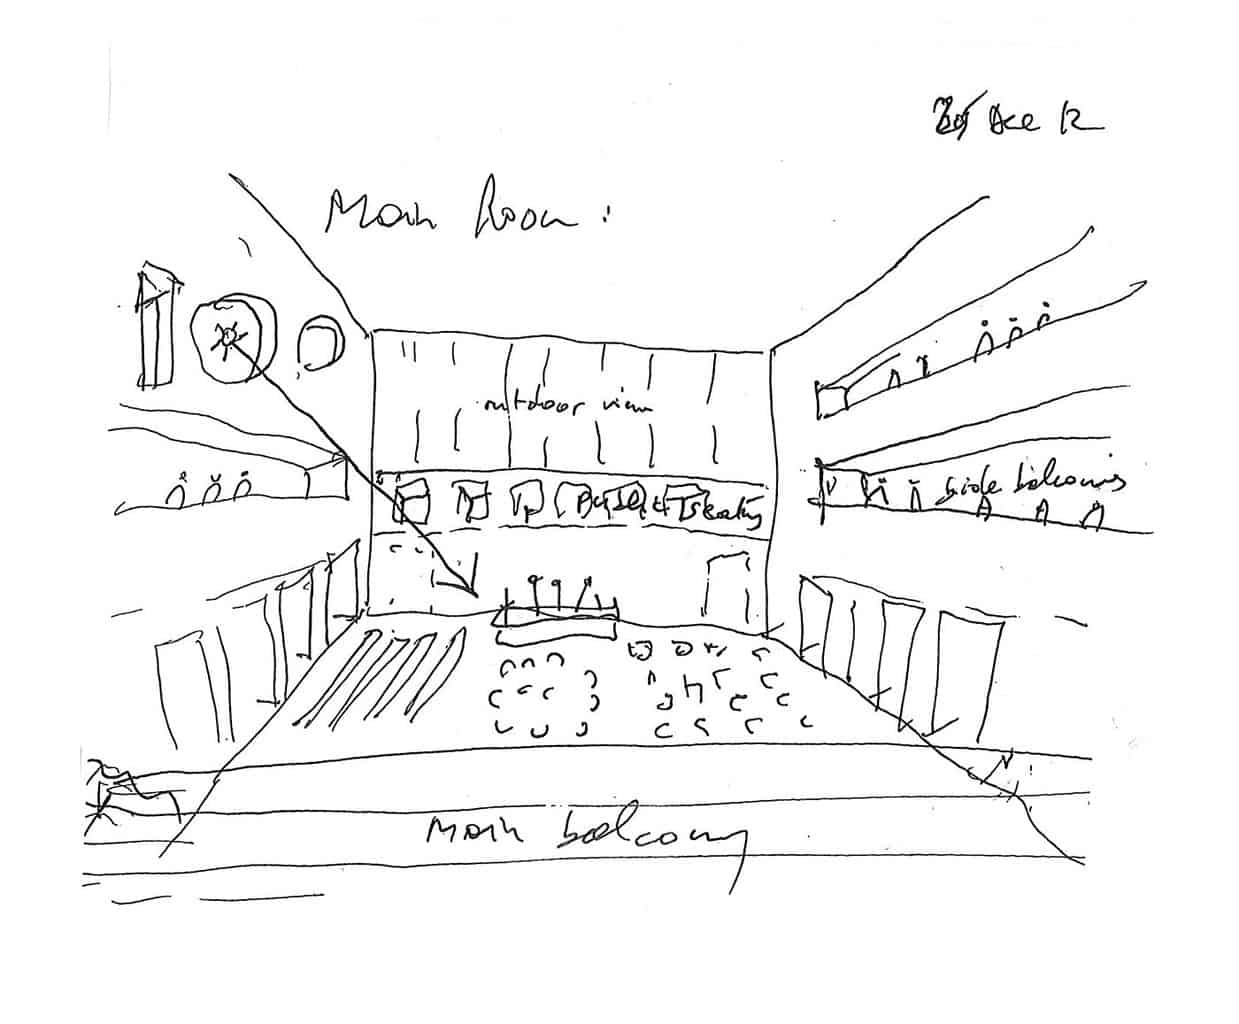 Dec 12
Main Room:
outdoor view
side balconies
Main balcony